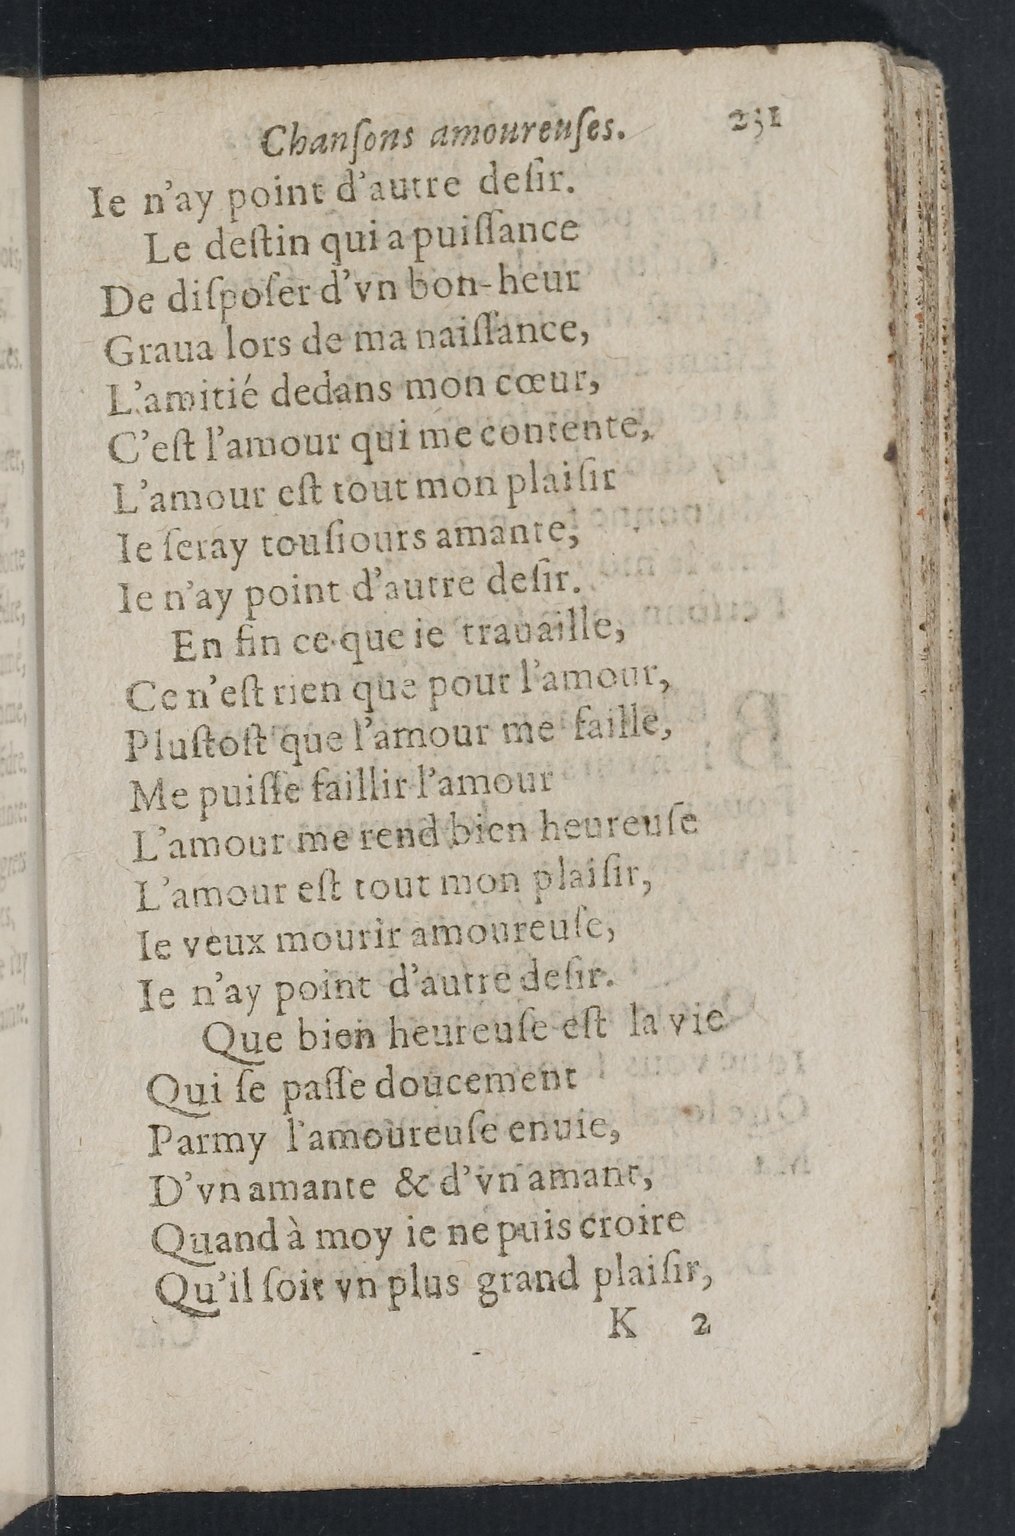 Chanſons amoureuſes. 231
Ie n'ay point d'autre deſir.
Le deſtin qui a puiſſance
De diſpoſer d'vn bon-heur
Graua lors de ma naiſſance,
L'amitié dedans mon cœur,
C'eſt l'amour qui me contente,
L'amour eſt tout mon plaiſir
Ie ſeray touſiours amante,
Ie n'ay point d'autre deſir.
En fin ce que ie trauaille,
Ce n'eſt rien que pour l'amour,
Pluſtoſt que l'amour me faille,
Me puiſſe faillir l'amour
L'amour me rend bien heureuſe
L'amour eſt tout mon plaiſir,
Ie veux mourir amoureuſe,
Ie n'ay point d'autre deſir.
Que bien heureuſe eſt la vie
Qui ſe paſſe doucement
Parmy l'amoureuſe enuie,
D'vn amante & d'vn amant,
Quand à moy ie ne puis croire
Qu'il ſoit vn plus grand plaiſir,
K 2